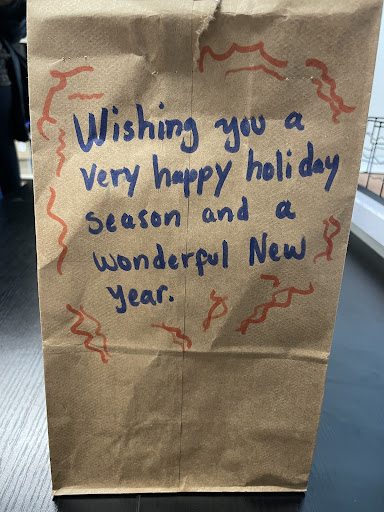 Wishing you a
very happy holiday
season and a
wonderful New
year.